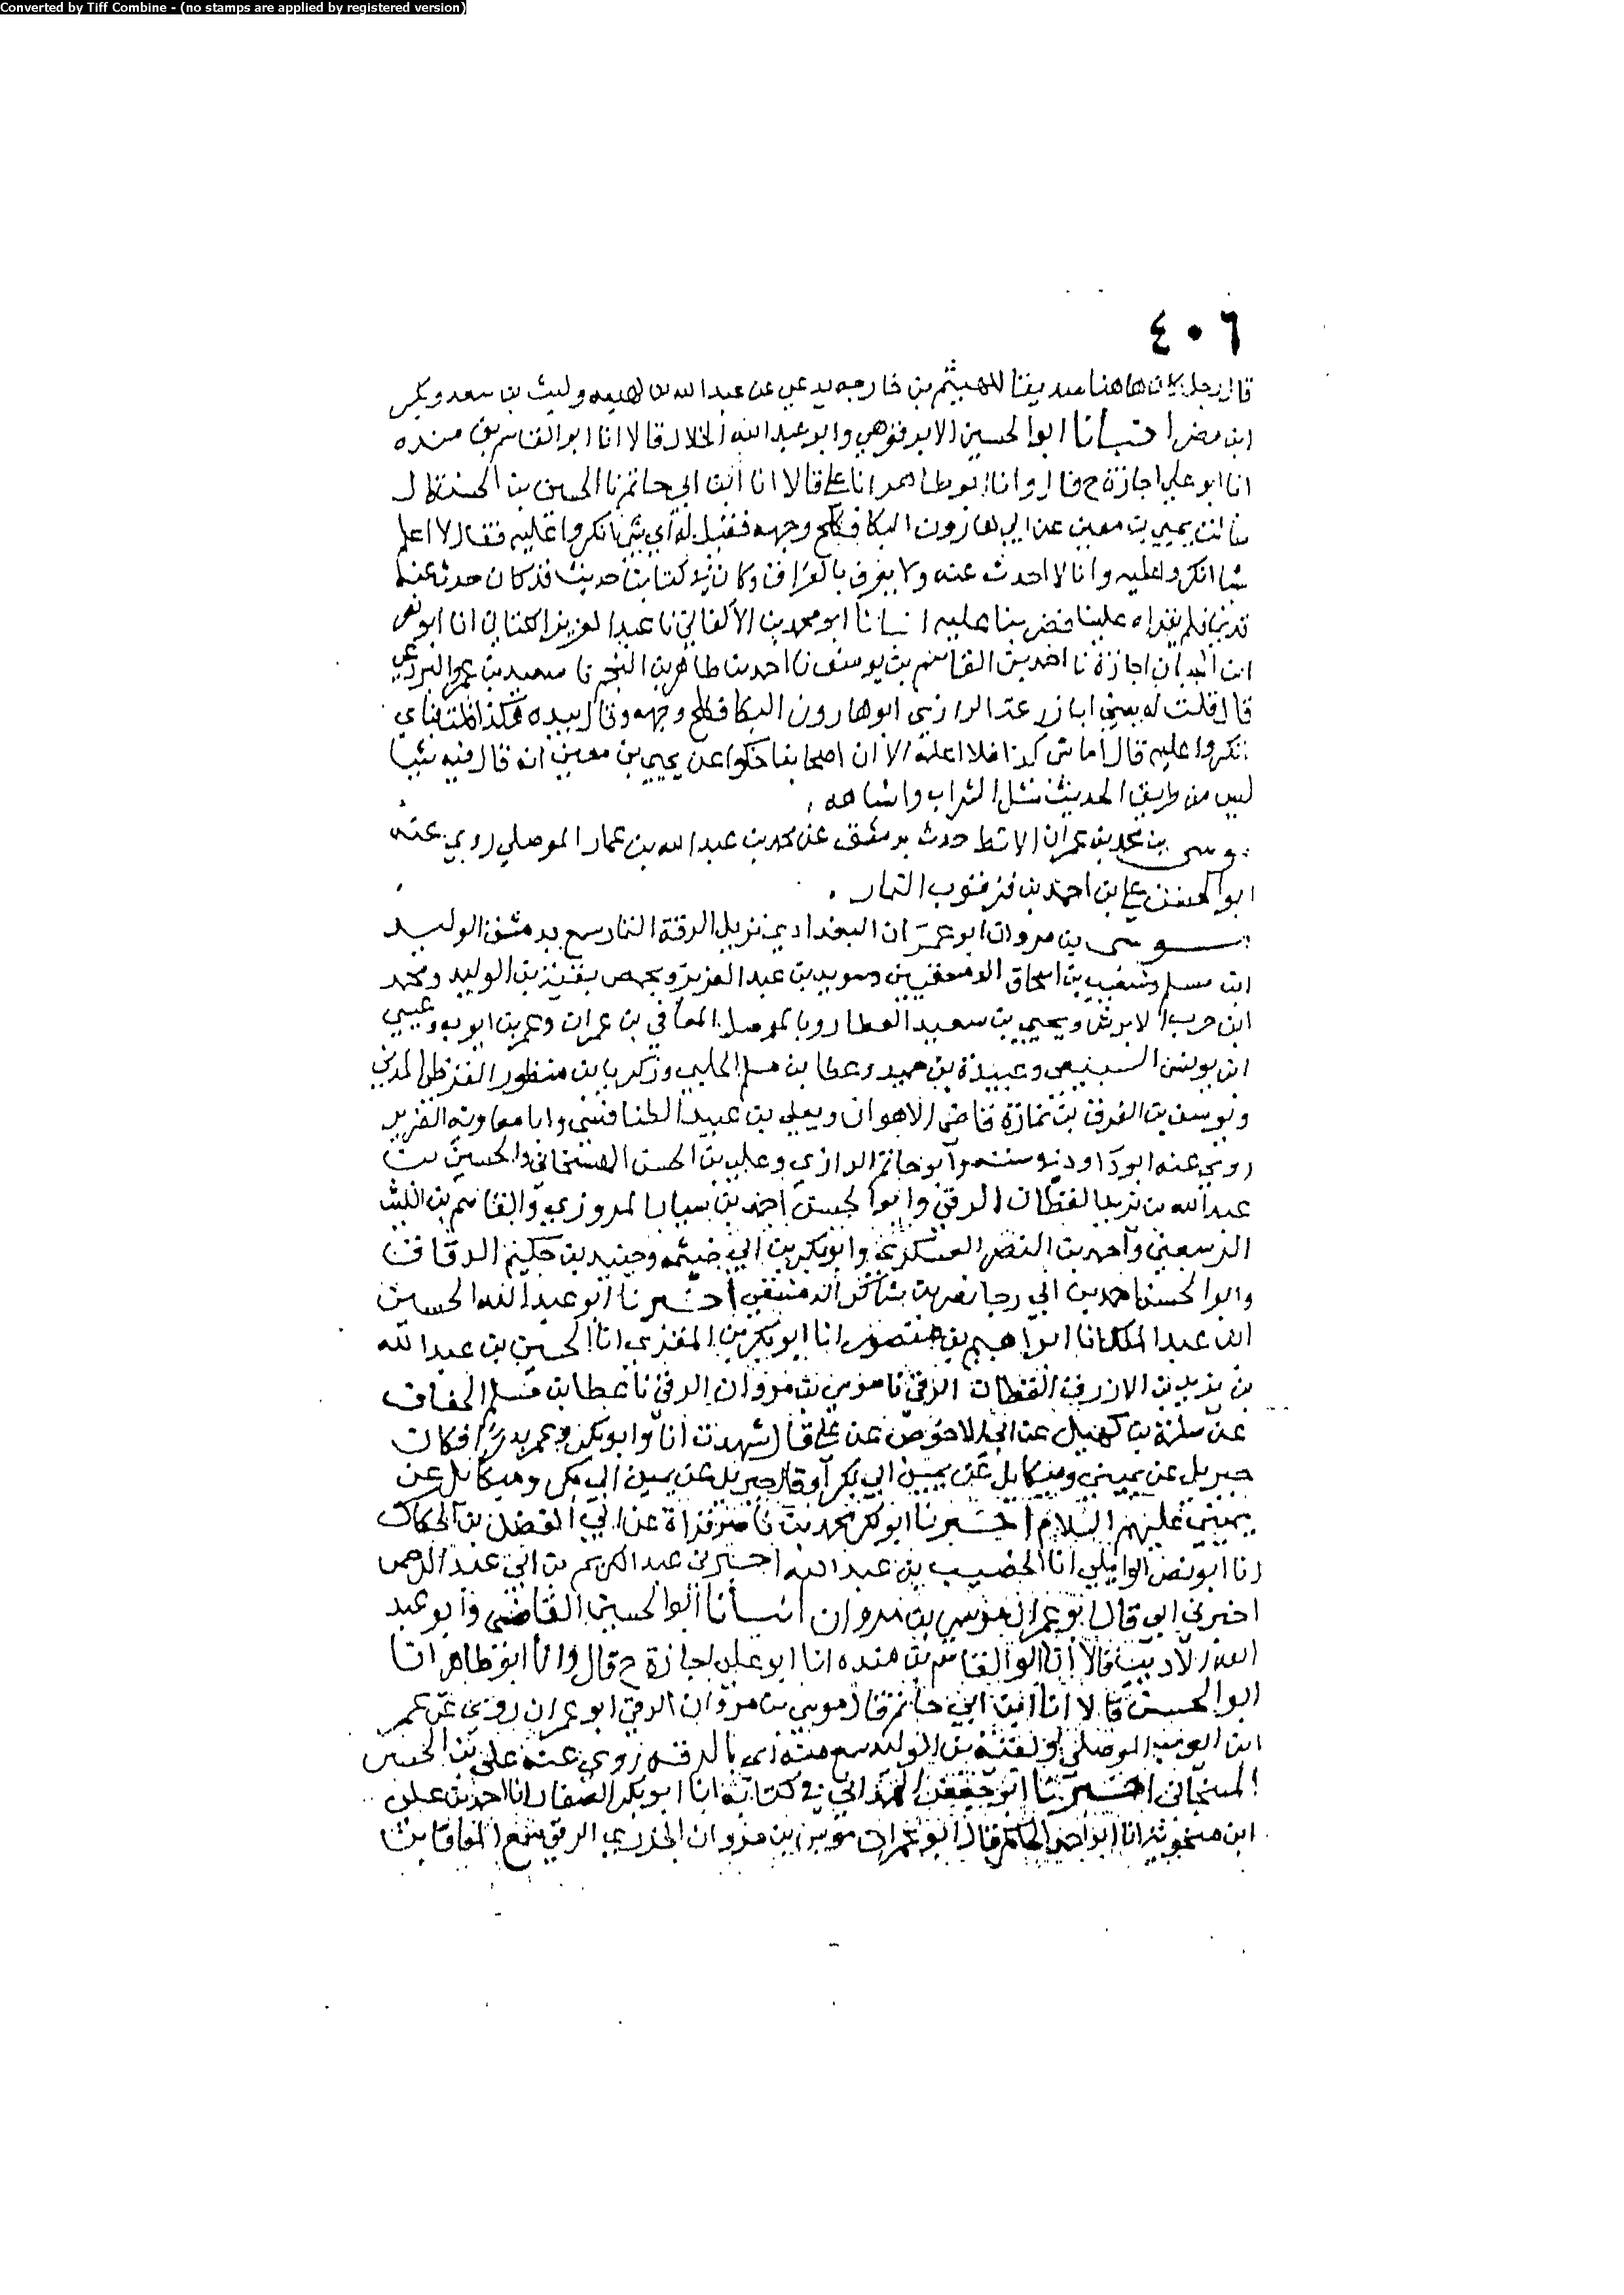 Converted by Tiff Combine - (no stamps are applied by registered version)
٤٠٦
قال رجل كان هاهنا صديقا للهيثم بن خارجه يدعي عن عبد الله بن لهيعه وليث بن سعد وبكر
ابن مضر انبانا ابو الحسين الابرقوهي وابو عبد الله الخلال قالا انا ابو القاسم بن منده
انا ابو علي اجازة ح قال وانا ابو طاهر انا علي قالا انا ابن ابي حاتم نا الحسين بن الحسن قال
سالت يحيي بن معين عن ابي هارون البكا فكلح وجهه فقيل له اي شي انكروا عليه فقال لا اعلم
شيا انكروا عليه وانا لا احدث عنه ولا يعرف بالعراق وكان في كتابنا حديث قد كان حدث عنه
قديما فلم يقراه علينا فضربنا عليه انبانا ابو محمد بن الاكفاني نا عبد العزيز الكتاني انا ابو نصر
ابن الجبان اجازة نا احمد بن القاسم بن يوسف نا احمد بن طاهر بن النجم نا سعيد بن عمرو البردعي
قال قلت له يعني ابا زرعة الرازي ابو هارون البكا فكلح وجهه وقال بيده هكذا قلت فباي
انكروا عليه قال اما شي كذا فلا اعلمه الا ان اصحابنا حكوا عن يحيي بن معين انه قال فيه شيا
ليس من طريق الحديث مثل الشراب واشباهه
موسى بن محمد بن عمران الانباط حدث بدمشق عن محمد بن عبد الله بن عمار الموصلي روي عنه
ابو الحسن علي بن احمد بن قرقوب التمار .
موسى بن مروان ابو عمران البغدادي نزيل الرقة التمار سمع بدمشق الوليد
ابن مسلم وشعيب بن اسحاق الدمشقيين وسويد بن عبد العزيز وبحمص بقية بن الوليد ومحمد
ابن حرب الابرش ويحيي بن سعيد العطار وبالموصل المعافي بن عمران وعمر بن ايوب وعيسي
ابن يونس السبيعي وعبيدة بن حميد وعطا بن مسلم الحلبي وزكريا بن منظور القرظي المدني
ويوسف بن الغرق بن نمازة قاضي الاهوان ويعلي بن عبيد الطنافسي وابا معاوية الضرير
روي عنه ابو داود في سننه وابو حاتم الرازي وعلي بن الحسن الهسنجاني والحسين بن
عبد الله بن يزيد القطان الرقي وابو الحسن احمد بن سيار المروزي والقاسم بن الليث
الرسعني واحمد بن النضر العسكري وابو بكر بن ابي خيثمه وجنيد بن حكيم الدقاق
وابو الحسن احمد بن ابي رجا نصر بن شاكر الدمشقي اخبرنا ابو عبد الله الحسين
ابن عبد الملك انا ابراهيم بن منصور انا ابو بكر بن المقري انا الحسين بن عبد الله
بن يزيد بن الازرق القطان الرقي نا موسي بن مروان الرقي نا عطا بن مسلم الخفاف
عن سلمة بن كهيل عن ابي الاحوص عن علي قال شهدت انا وابو بكر وعمر بدرا فكان
جبريل عن يميني وميكايل عن يمين ابي بكر او قال جبريل عن يمين ابي بكر وميكايل عن
يميني عليهم السلام اخبرنا ابو بكر محمد بن ناصر قراة عن ابي الفضل بن الحكاك
انا ابو نصر الوايلي انا الخصيب بن عبد الله اخبرني عبد الكريم بن ابي عبد الرحمن
اخبرني ابي قال ابو عمران موسي بن مروان انبانا ابو الحسين القاضي وابو عبد
الله الاديب قالا انا ابو القاسم بن منده انا ابو علي اجازة ح قال وانا ابو طاهر انا
ابو الحسن قالا انا ابن ابي حاتم قال موسي بن مروان الرقي ابو عمران روي عن عمر
ابن ايوب الموصلي وبقية بن الوليد سمع منه ابي بالرقه روي عنه علي بن الحسن
الهسنجاني اخبرنا ابو جعفر الهمذاني في كتابه انا ابو بكر الصفار انا احمد بن علي
ابن منجويه انا ابو احمد الحاكم قال ابو عمران موسي بن مروان الجزري الرقي سمع المعافا بن